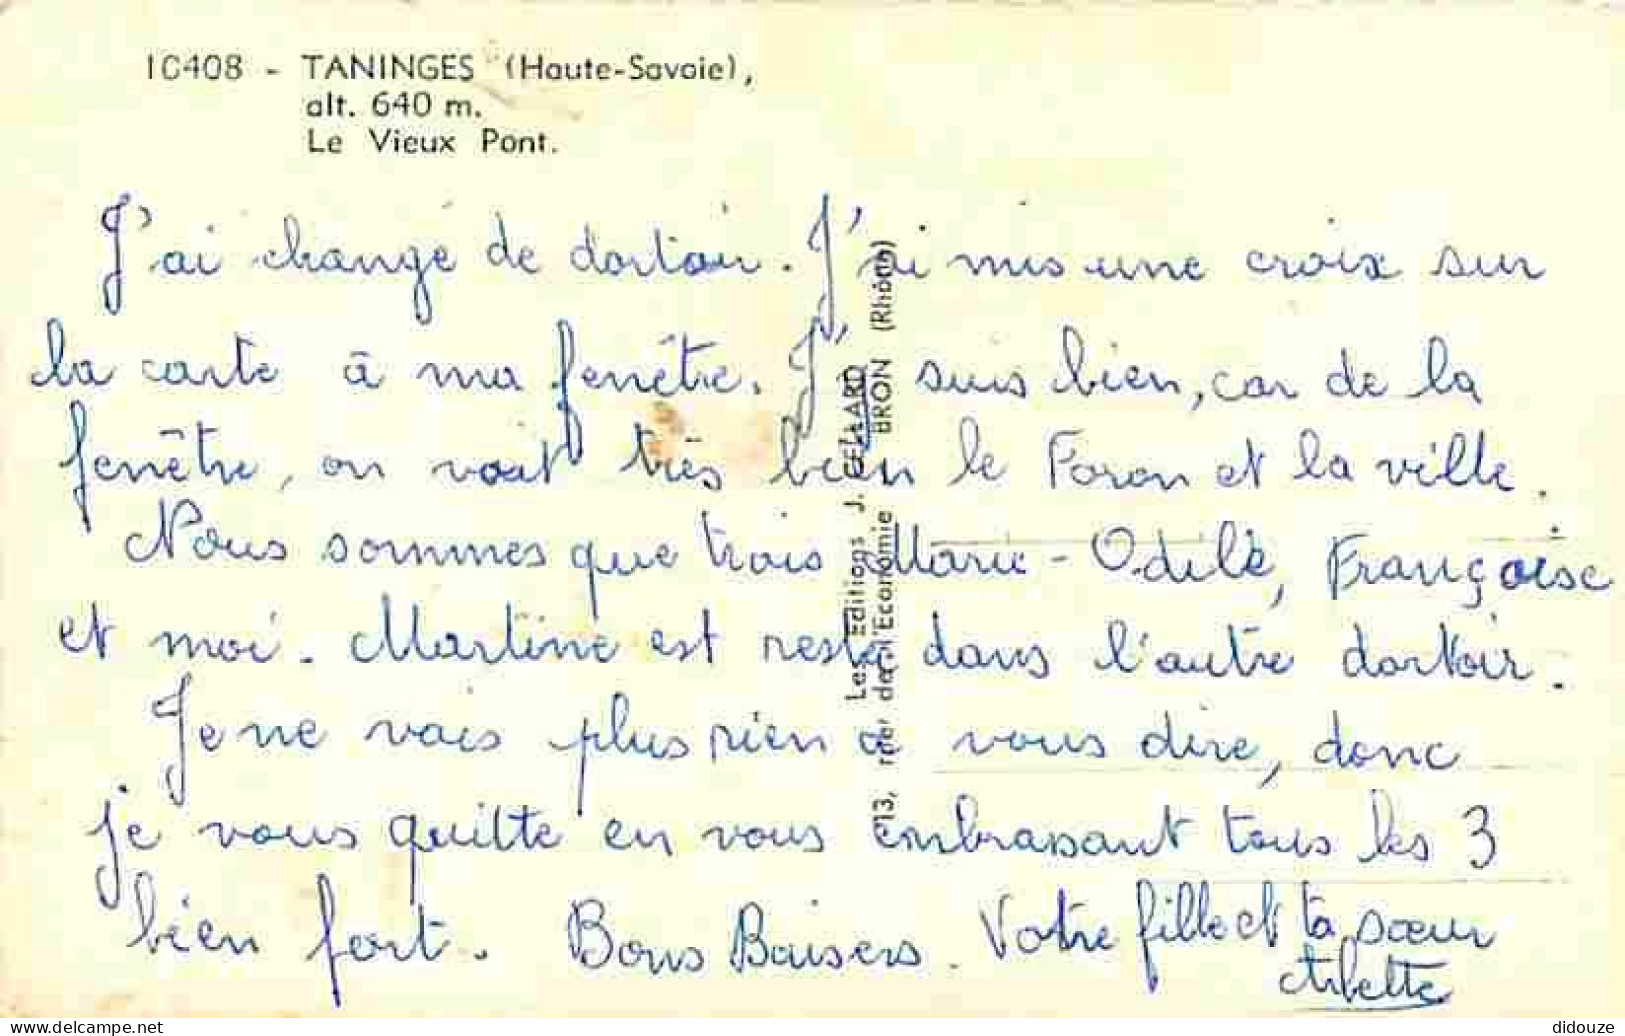 10408 - TANINGES (Haute-Savoie),
alt. 640 m.
Le Vieux Pont.
J'ai changé de dortoir. J'ai mis une croix sur
la carte à ma fenêtre. J'y suis bien, car de la
fenêtre, on voit très bien le Foron et la ville.
Nous sommes que trois Marie-Odile, Françoise
et moi. Martine est resté dans l'autre dortoir.
Je ne vais plus rien à vous dire, donc
je vous quitte en vous embrassant tous les 3
bien fort. Bons Baisers. Votre fille et ta sœur
Arlette
Les Editions J. CELLARD
13, rue de l'Economie BRON (Rhône)
didouze